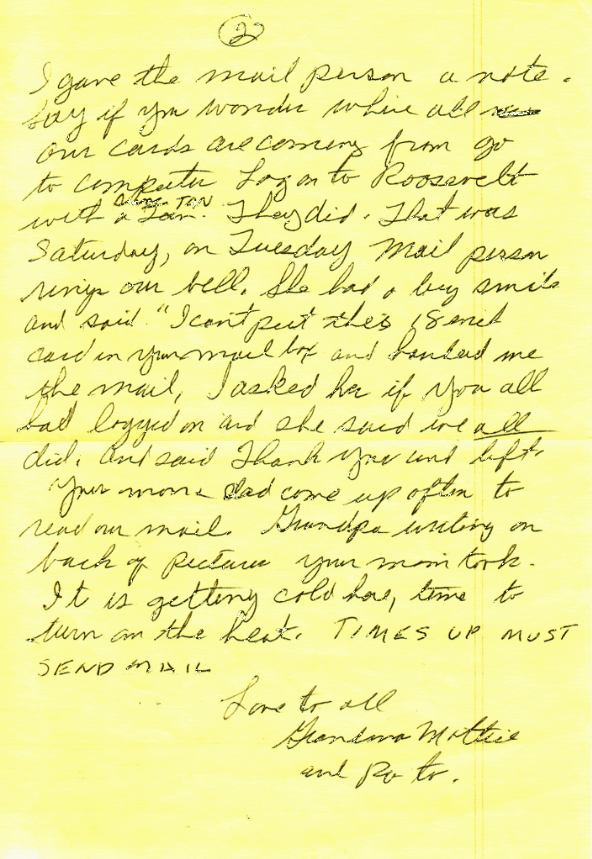 2
I gave the mail person a note.
Say if you wonder where all
our cards are coming from go
to computer Log on to Roosevelt
with a Tan. TAN They did. That was
Saturday, on Tuesday Mail person
rings our bell. She had a big smile
and said "I cant put this 18 inch
card in your mail box and handed me
the mail, I asked her if you all
had logged on and she said we all
did. And said Thank you and left.
Your mom & dad come up often to
read our mail. Grandpa writing on
back of picture your mom took.
It is getting cold here, time to
turn on the heat. TIMES UP MUST
SEND MAIL
Love to all
Grandma Mattie
and Po to.